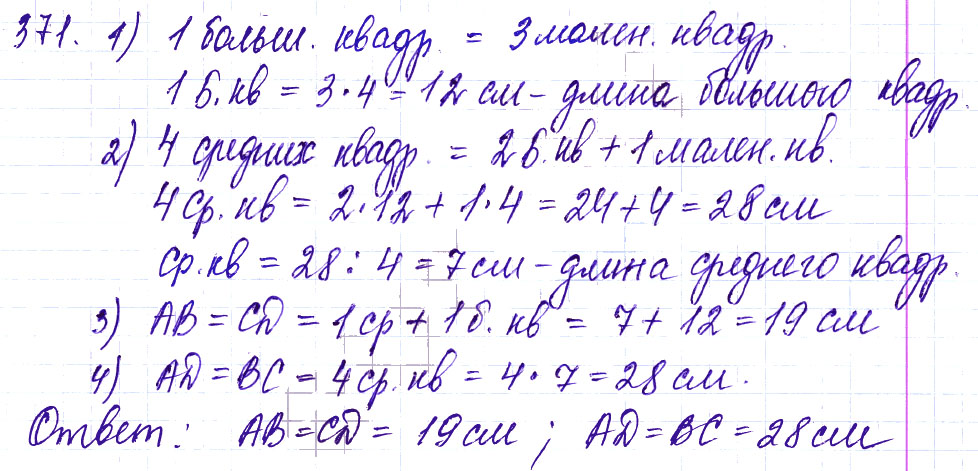 371. 1) 1 больш. квадр. = 3 мален. квадр.
1 б. кв = 3 · 4 = 12 см – длина большого квадр.
2) 4 средних квадр. = 2 б. кв + 1 мален. кв.
4 ср. кв = 2 · 12 + 1 · 4 = 24 + 4 = 28 см
ср. кв = 28 : 4 = 7 см – длина среднего квадр.
3) AB = CD = 1 ср + 1 б. кв = 7 + 12 = 19 см
4) AD = BC = 4 ср. кв = 4 · 7 = 28 см.
Ответ: AB = CD = 19 см ; AD = BC = 28 см